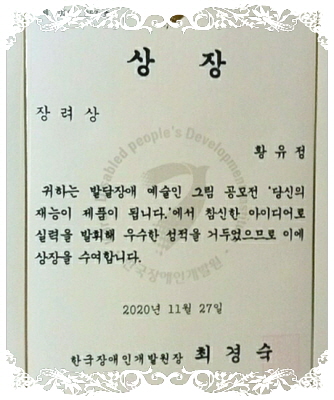 상 장
장 려 상
황 유 점
귀하는 발달장애 예술인 그림 공모전 '당신의
재능이 제품이 됩니다.'에서 참신한 아이디어로
실력을 발휘해 우수한 성적을 거두었으므로 이에
상장을 수여합니다.
2020년 11월 27일
한국장애인개발원장 최 경 숙